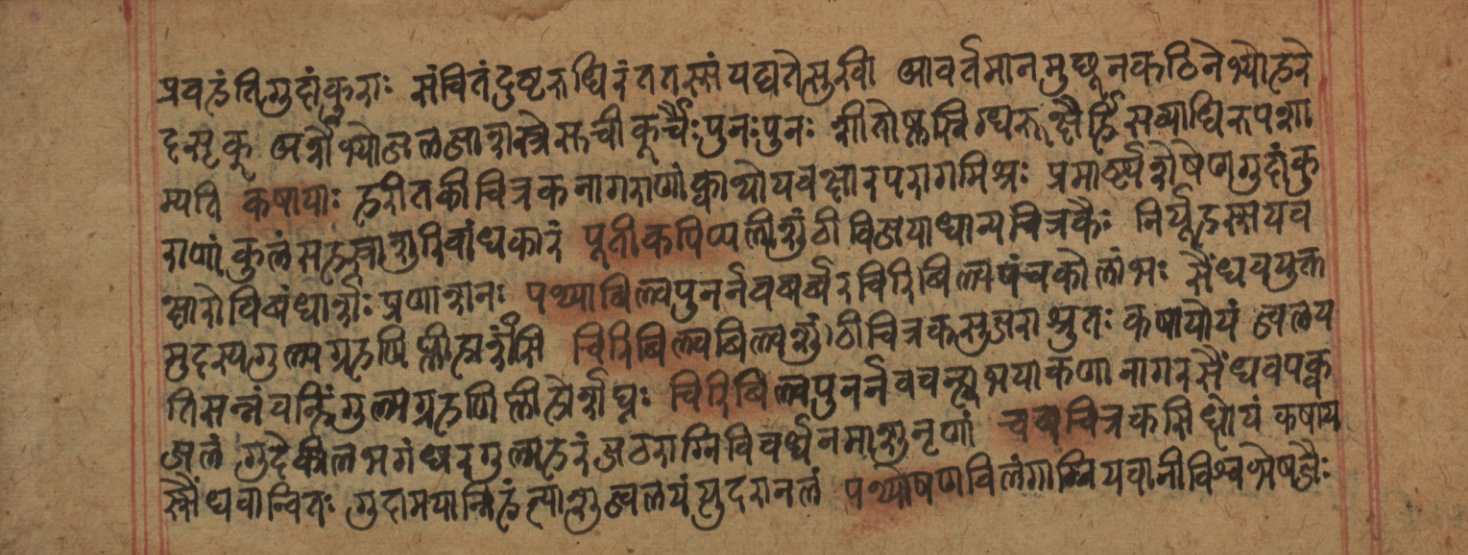 प्रवहंतिगुदांकुराः संचितंदुष्टरुधिरंततस्सांयद्यतेसुखी आवर्तमानमुच्छूनकठिनेभ्योहरे
दसृक् अर्शोभ्योजलजाशस्त्रेसूचीकूर्चैःपुनःपुनः शीतोष्णस्निग्धरूक्षैर्हिसव्याधिरुपशा
म्यति कषायाः हरीतकीचित्रकनागराणांक्वाथोयवक्षारपरागमिश्रः प्रमार्ष्ट्यशेषेणगुदांकु
राणांकुलंसहस्रांशुरिवांधकारं पूतीकपिप्पलीशुंठीविजयाधान्यचित्रकैः निर्यूहस्सयव
क्षारोविबंधार्शःप्रणाशनः पथ्याबिल्वपुनर्नवबर्बरचिरिबिल्वपंचकोलांभः सैंधवयुक्त
मुदस्यगुल्मग्रहणिप्लीहार्शांसि चिरिबिल्वबिल्वशुंठीचित्रकसुजराश्रुतः कषायोयं ज्वलय
तिसन्नंवन्हिंगुल्मग्रहणिप्लीहार्शोघ्नः चिरिबिल्वपुनर्नववचन्ह्यभयाकणानागरसैंधवपक्व
जलं गुदकीलभगंधरगुल्महरंजठराग्निविवर्धनमाशुनृणां चव्यचित्रकसिद्धोयंकषाय
स्सैंधवान्वितः गुदामयान्निहंत्याशुज्वलयंत्युदरानलं पथ्योषणविलंगाग्नियवानीविश्वभेषजैः